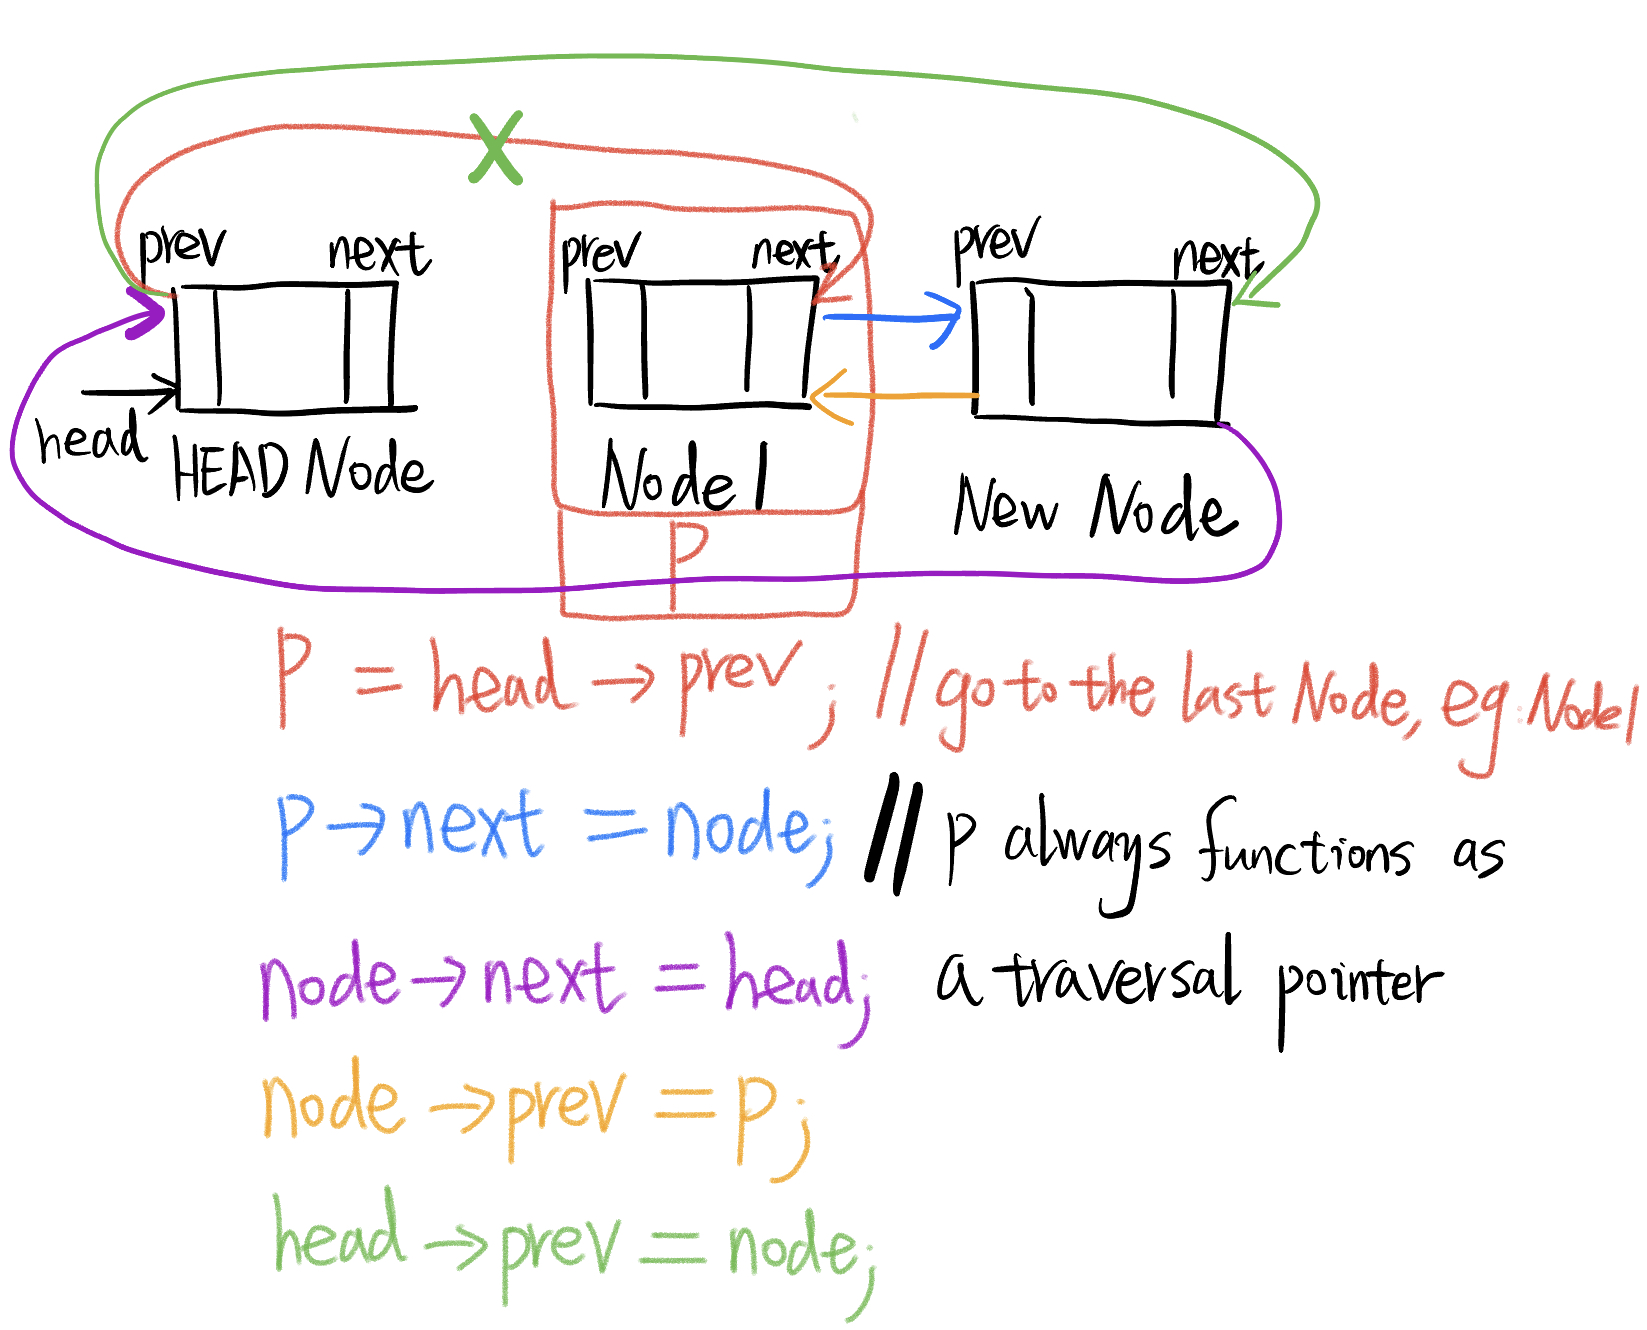 prev next prev next prev next
head
HEAD Node Node1 New Node
P
P = head → prev ; // go to the last Node, eg: Node1
p → next = node; // p always functions as
node → next = head; a traversal pointer
node → prev = p;
head → prev = node;